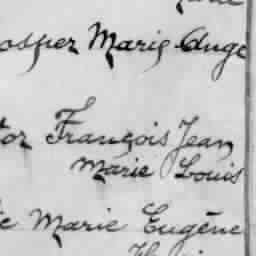 osper Marie Auge
tor François Jean
Marie Louis
e Marie Eugène